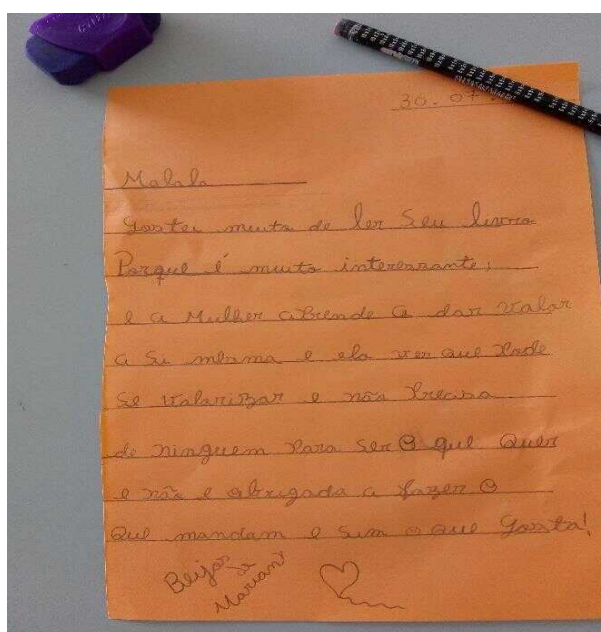 30.07
Malala
Gostei muito de ler seu livro
Porque é muito interessante;
e a Mulher abrende a dar valor
a si mesma e ela ver que Pode
se valorizar e não Precisa
de ninguem Para ser o que Quer
e não e obrigada a fazer o
Que mandam e sim o que Gosta!
Beijos de
Mariani